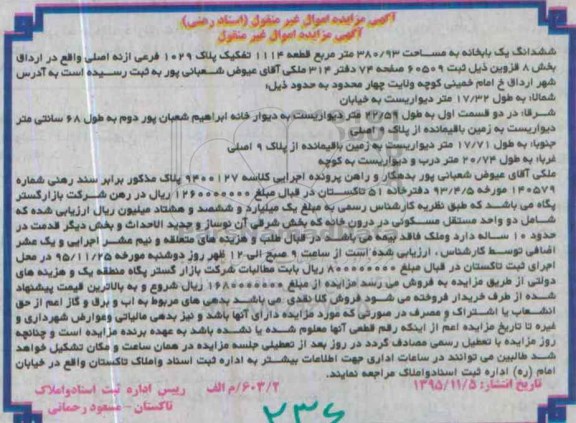 آگهی مزایده اموال غیر منقول (اسناد رهنی)
آگهی مزایده اموال غیر منقول
ششدانگ یک بابخانه به مساحت ۳۸۰/۹۳ متر مربع قطعه ۱۱۱۴ تفکیک پلاک ۱۰۲۹ فرعی ازنه اصلی واقع در ارداق
بخش ۸ قزوین ذیل ثبت ۶۰۵۰۹ صفحه ۷۴ دفتر ۳۱۴ ملکی آقای عیوض شعبانی پور به ثبت رسیده است به آدرس
شهر ارداق خ امام خمینی کوچه ولایت چهار محدود به حدود ذیل؛
شمالا؛ به طول ۱۷/۳۲ متر دیواریست به خیابان
شرقا؛ در دو قسمت اول به طول ۲۲/۵۶ متر دیواریست به دیوار خانه ابراهیم شعبان پور دوم به طول ۶۸ سانتی متر
دیواریست به زمین باقیمانده از پلاک ۹ اصلی
جنوبا؛ به طول ۱۷/۷۱ متر دیواریست به زمین باقیمانده از پلاک ۹ اصلی
غربا؛ به طول ۲۰/۷۴ متر درب و دیواریست به کوچه
ملکی آقای عیوض شعبانی پور بدهکار و راهن پرونده اجرایی کلاسه ۹۴۰۰۱۲۷ پلاک مذکور برابر سند رهنی شماره
۱۴۰۵۷۹ مورخه ۹۳/۴/۵ دفترخانه ۵۱ تاکستان در قبال مبلغ ۱۲۶۰۰۰۰۰۰۰ ریال در رهن شرکت بازارگستر
پگاه می باشدکه طبق نظریه کارشناس رسمی به مبلغ یک میلیارد و ششصد و هشتاد میلیون ریال ارزیابی شده که
شامل دو واحد مستقل مسکونی در درون خانه که بخش شرقی آن نوساز و جدید الاحداث و بخش دیگر قدمت در
حدود ۱۰ ساله دارد وملک فاقد بیمه می باشد در قبال طلب و هزینه های متعلقه و نیم عشر اجرایی و یک عشر
اضافی توسط کارشناس ، ارزیابی شده است از ساعت ۹ صبح الی ۱۲ ظهر روز دوشنبه مورخه ۹۵/۱۱/۲۵ در محل
اجرای ثبت تاکستان در قبال مبلغ ۸۰۰۰۰۰۰۰۰ ریال بابت مطالبات شرکت بازار گستر پگاه منطقه یک و هزینه های
دولتی از طریق مزایده به فروش می رسد مزایده از مبلغ ۱۶۸۰۰۰۰۰۰۰ ریال شروع و به بالاترین قیمت پیشنهاد
شده از طرف خریدار فروخته می شود فروش کلا نقدی می باشد بدهی های مربوط به آب و برق و گاز اعم از حق
انشعاب یا اشتراک و مصرف در صورتی که مورد مزایده دارای آنها باشد و نیز بدهی مالیاتی وعوارض شهرداری و
غیره تا تاریخ مزایده اعم از اینکه رقم قطعی آنها معلوم شده یا نشده باشد به عهده برنده مزایده است و چنانچه
روز مزایده با تعطیل رسمی مصادف گردد در روز بعد از تعطیلی جلسه مزایده در همان ساعت و مکان تشکیل خواهد
شد طالبین می توانند در ساعات اداری جهت اطلاعات بیشتر به اداره ثبت اسناد واملاک تاکستان واقع در خیابان
امام (ره) اداره ثبت اسنادواملاک مراجعه نمایند.
تاریخ انتشار: ۱۳۹۵/۱۱/۵
۶۰۳/۲/م الف
رییس اداره ثبت اسنادواملاک
تاکستان - مسعود رحمانی
۲۳۶